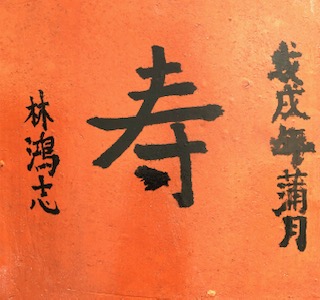 戊戌年蒲月
寿
林鴻志